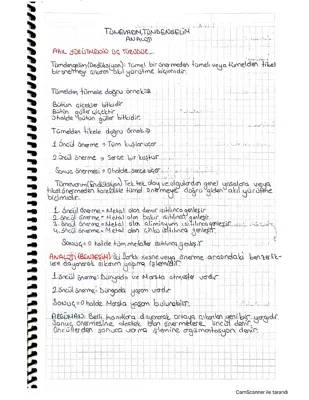 TÜMEVARIM, TÜMDENGELİM
ANALOJİ
AKIL YÜRÜTMENİN ÜÇ TÜRÜDÜR...
Tümdengelim (Dedüksiyon): Tümel bir önermeden tümel veya tümelden tikel
bir önermeyi çıkaran akıl yürütme biçimidir.
Tümelden tümele doğru örnek:
Bütün çiçekler bitkidir
Bütün güller çiçektir
O halde bütün güller bitkidir.
Tümelden tikele doğru örnek:
1. öncül önerme = Tüm kuşlar uçar
2. öncül önerme = Serçe bir kuştur
Sonuç önermesi = O halde serçe uçar
Tümevarım (Endüksiyon) Tek tek olay ve olgulardan genel yasalara veya
tikel önermeden hareketle tümel önermeye doğru giden akıl yürütme
biçimidir.
1. öncül önerme = Metal olan demir ısıtılınca genleşir
2. öncül önerme = Metal olan bakır ısıtılınca genleşir
3. öncül önerme = Metal olan alüminyum ısıtılınca genleşir
4. öncül önerme = Metal olan çinko ısıtılınca genleşir
Sonuç = O halde tüm metaller ısıtılınca genleşir.
ANALOJİ (BENZEŞİM) İki farklı nesne veya önerme arasındaki benzerlik-
lere dayanarak çıkarım yapma işlemidir.
1. öncül önerme: Dünyada ve Marsta atmosfer vardır
2. öncül önerme: Dünyada yaşam vardır
Sonuç = O halde Marsta yaşam bulunabilir.
ARGÜMAN: Belli kanıtlara dayanarak ortaya çıkarılan yeni bir yargıdır.
Sonuç önermesine destek olan önermelere öncül denir.
Öncüllerden sonuca varma işlemine argümantasyon denir.
CamScanner ile tarandı